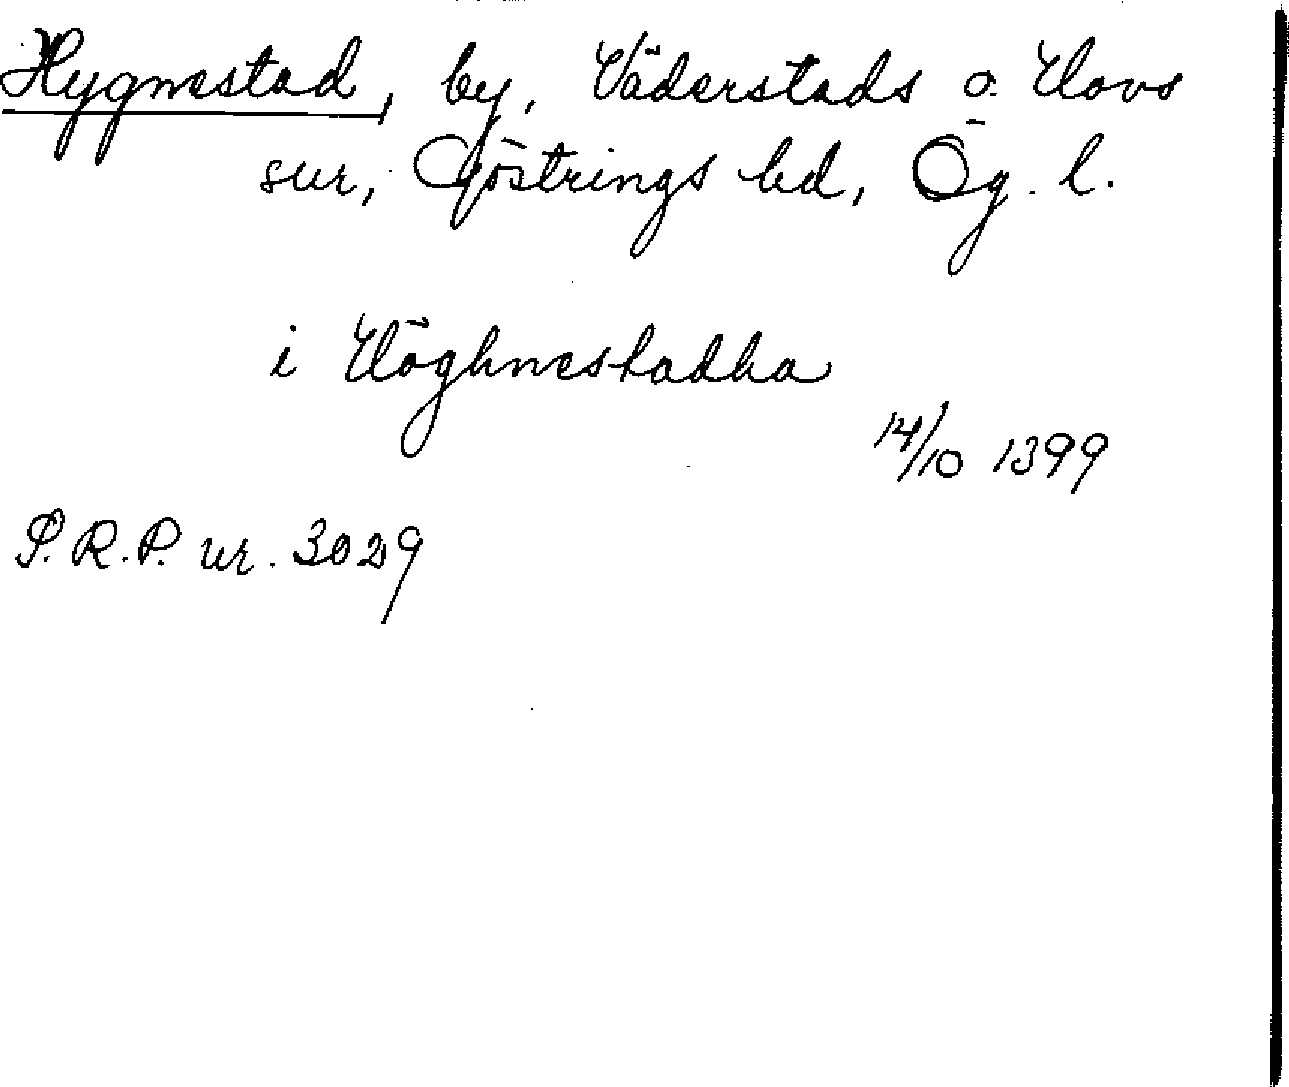 Hygnestad, by, Väderstads o. Hovs
snr, Göstrings hd, Ög. l.
i Höghnestadha
14/10 1399
S.R.P. nr. 3029